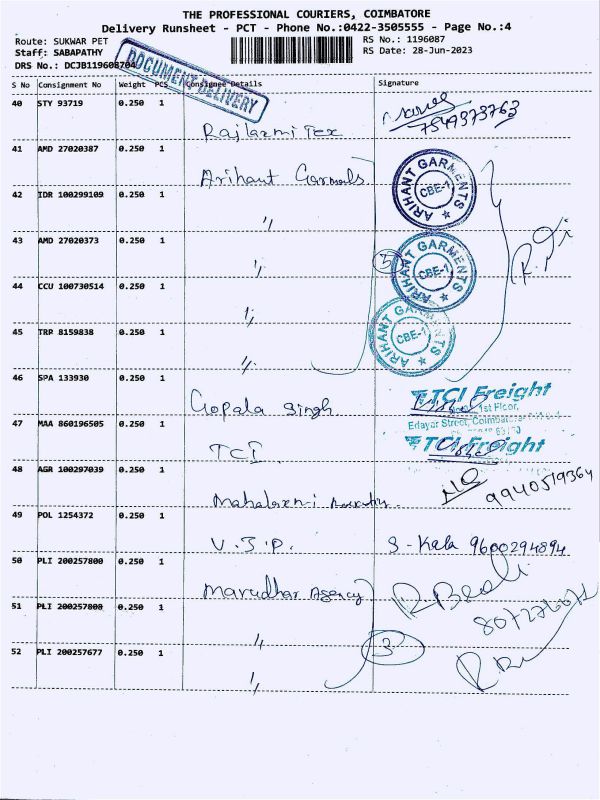 THE PROFESSIONAL COURIERS, COIMBATORE
Delivery Runsheet - PCT - Phone No.:0422-3505555 - Page No.:4
Route: SUKWAR PET
RS No.: 1196087
Staff: SABAPATHY
RS Date: 28-Jun-2023
DRS No.: DCJB119608704
DOCUMENT DELIVERY
S No Consignment No Weight PCS Consignee Details Signature
40 STY 93719 0.250 1
Rajlaxmi Tex 7549373763
41 AMD 27020387 0.250 1
Arihant Garments
ARIHANT GARMENTS CBE-1
42 IDR 100299109 0.250 1
"
43 AMD 27020373 0.250 1
" 5
ARIHANT GARMENTS CBE-1
44 CCU 100730514 0.250 1
"
45 TRP 8159838 0.250 1
"
ARIHANT GARMENTS CBE-1
46 SPA 133930 0.250 1
Gopala Singh
TCI Freight
1st Floor,
47 MAA 860196505 0.250 1
Edayar Street, Coimbatore
TCI
TCI Freight
48 AGR 100297039 0.250 1
Mahalaxmi 9940519364
49 POL 1254372 0.250 1
V.J.P. S-Kala 9600294894
50 PLI 200257800 0.250 1
Marudhar Agency
51 PLI 200257808 0.250 1
"
52 PLI 200257677 0.250 1
3
"